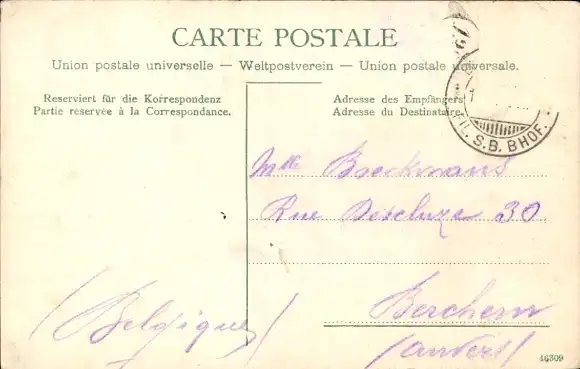 CARTE POSTALE
Union postale universelle — Weltpostverein — Union postale universale.
Reserviert für die Korrespondenz
Partie réservée à la Correspondance.
Adresse des Empfängers
Adresse du Destinataire
S.B. BHOF.
Mlle Boeckmans
Rue 30
Berchem
(Anvers)
(Belgique)
46309